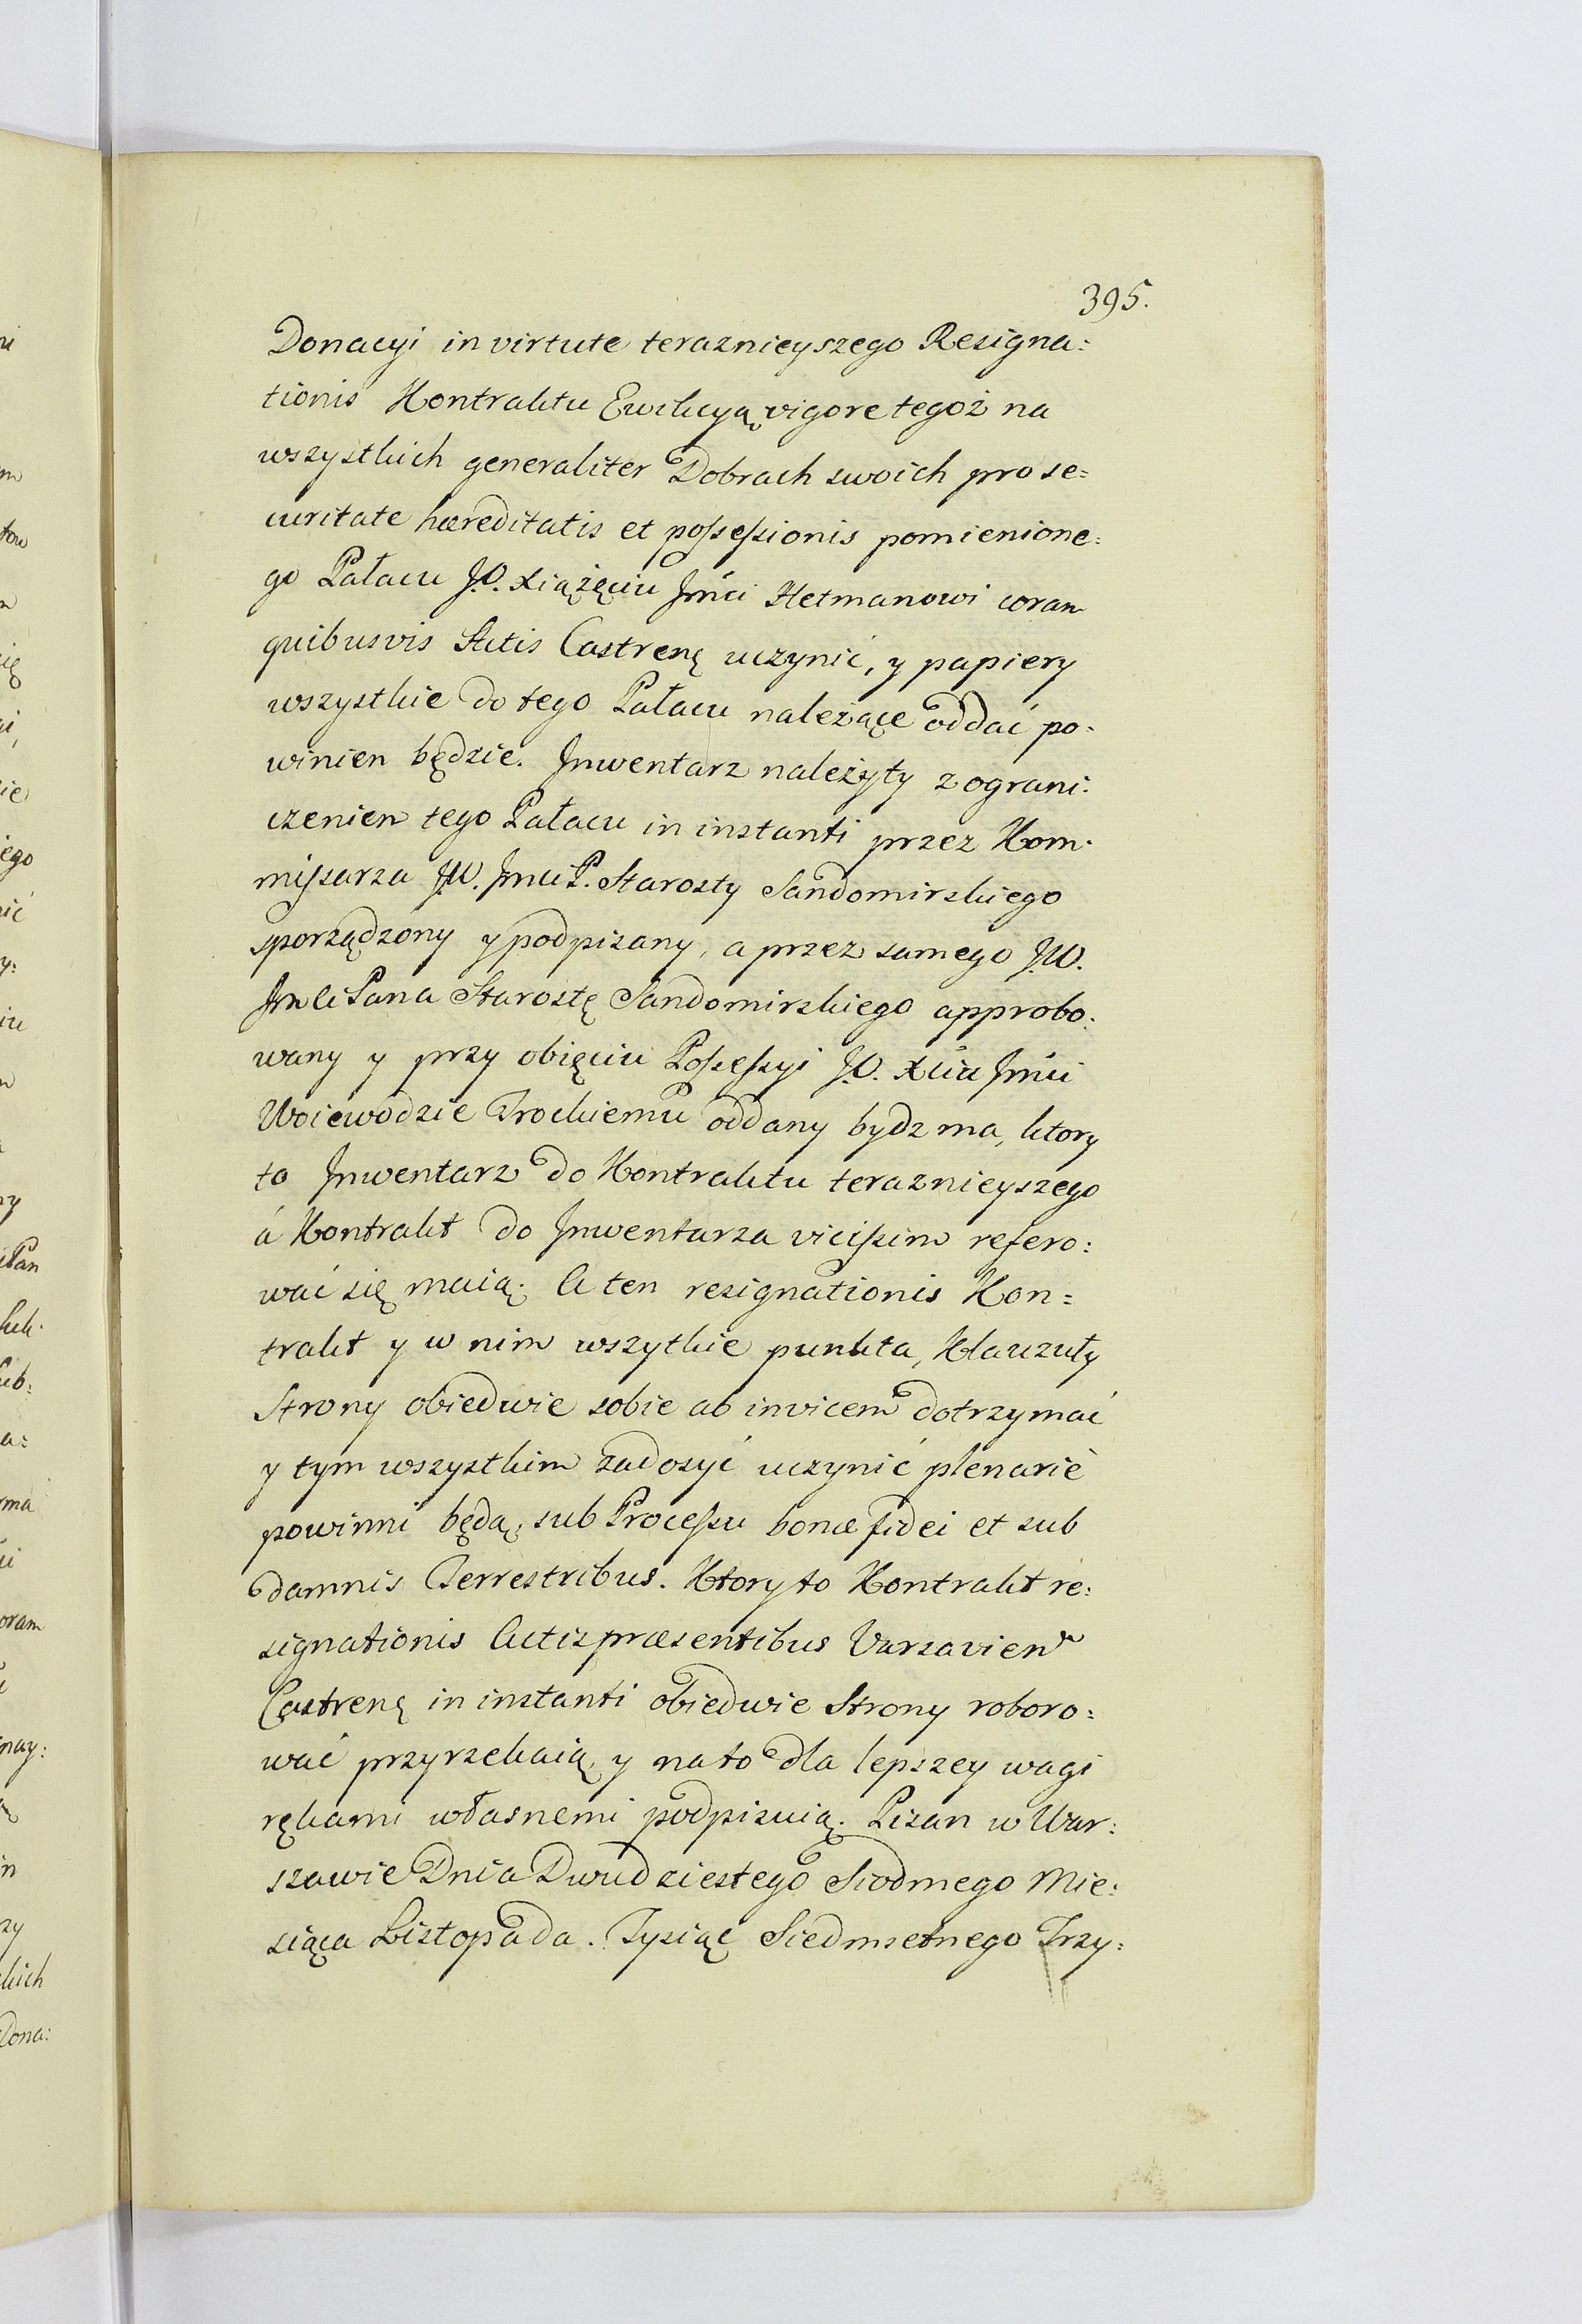 395.
Donacyi in virtute teraznieyszego Resigna:
tionis Kontraktu Ewikcyą vigore tegoż na
wszystkich generaliter Dobrach swoich pro se=
curitate hæreditatis et poſseſsionis pomienione:
go Pałacu J.O. Xiążęciu Jmći Hetmanowi coram
quibusvis Actis Castrenę uczynić, y papiery
wszystkie do tego Pałacu należące oddać po-
winien będzie. Jnwentarz należyty z ograni:
czeniem tego Pałacu in instanti przez Kom-
miſsarza JW. Jmci P. Starosty Sandomirskiego
sporządzony y podpisany, a przez samego JW.
Jmci Pana Starostę Sandomirskiego approbo:
wany y przy obięciu Poſseſsyi J.O. Xcia Jmći
Woiewodzie Trockiemu oddany bydz ma, ktory
to Jnwentarz do Kontraktu teraznieyszego
á Kontrakt do Jnwentarza viciſsim refero:
wać się maią. A ten resignationis Kon=
trakt y w nim wszytkie punkta, Klauzuły
Strony obiedwie sobie ab invicem dotrzymać
y tym wszystkim zadosyć uczynić plenarie
powinni będą, sub Proceſsu bonæ fidei et sub
damnis Terrestribus. Ktory to Kontrakt re:
signationis Actis præsentibus Varsavien
Castrenę in instanti obiedwie Strony roboro:
wać przyrzekaią, y na to dla lepszey wagi
rękami własnemi podpisuią. Pisan w War:
szawie Dnia Dwudziestego Siodmego Mie:
siąca Listopada. Tysiąc Siedmsetnego Trzy: